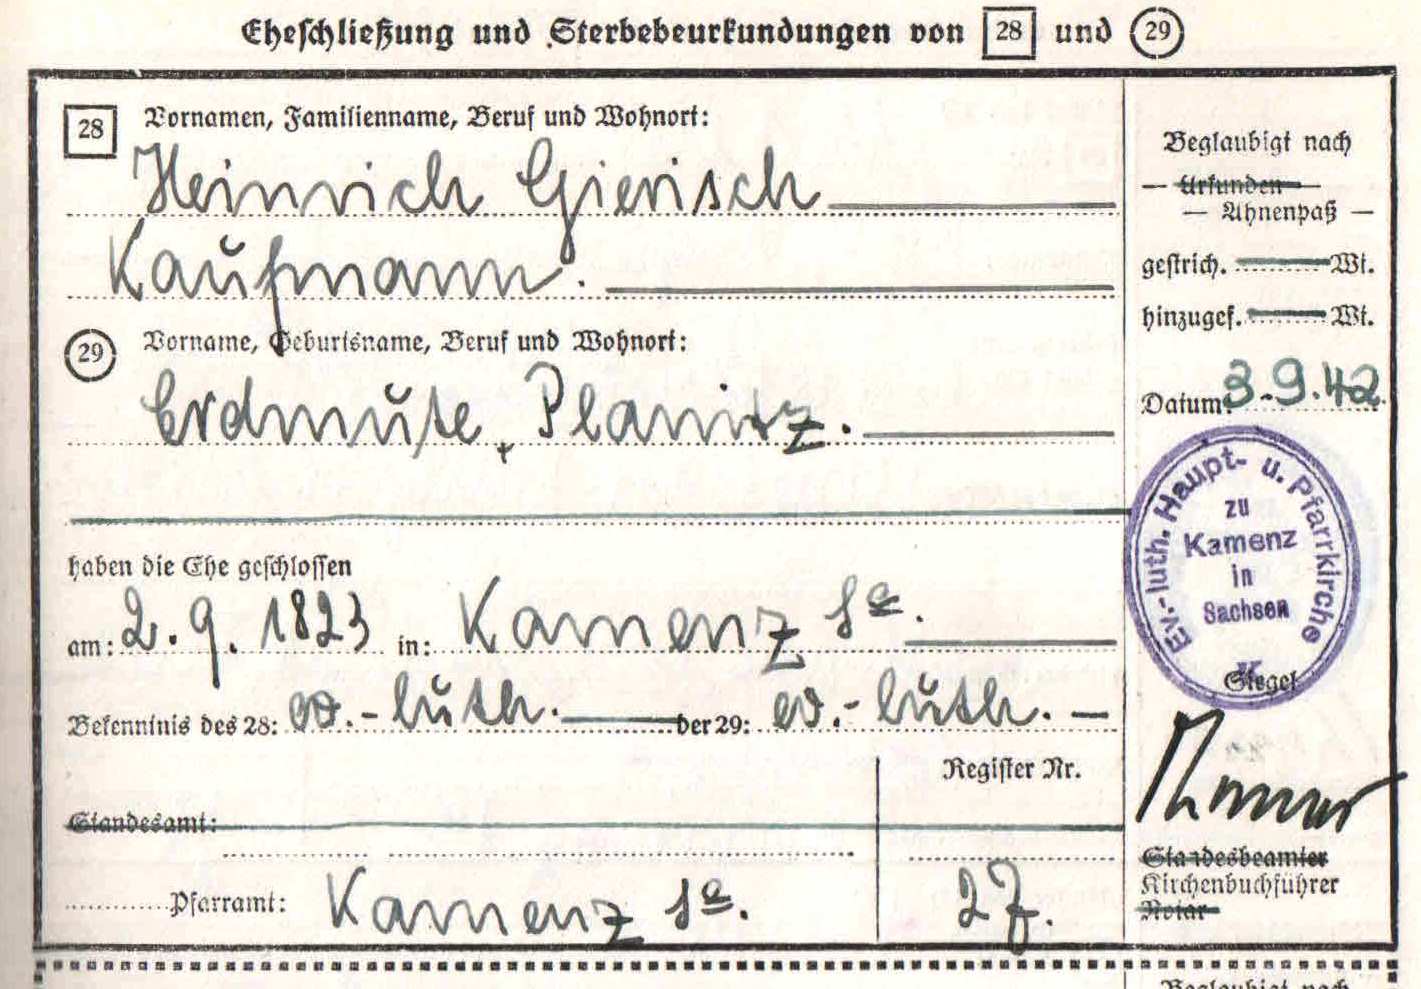 Eheschließung und Sterbebeurkundungen von 28 und 29
28 Vornamen, Familienname, Beruf und Wohnort:
Heinrich Gierisch
Kaufmann.
29 Vorname, Geburtsname, Beruf und Wohnort:
Erdmute, Planitz.
haben die Ehe geschlossen
am: 2. 9. 1823 in: Kamenz Sa.
Bekenntnis des 28: ev.-luth. der 29: ev.-luth.
Register Nr.
Standesamt:
Pfarramt: Kamenz Sa. 27.
Beglaubigt nach
— Urkunden —
— Ahnenpaß —
gestrich. Wt.
hinzugef. Wt.
Datum: 3.9.42
Ev.-luth. Haupt- u. Pfarrkirche
zu
Kamenz
in
Sachsen
Siegel
Standesbeamter
Kirchenbuchführer
Notar
Beglaubigt nach